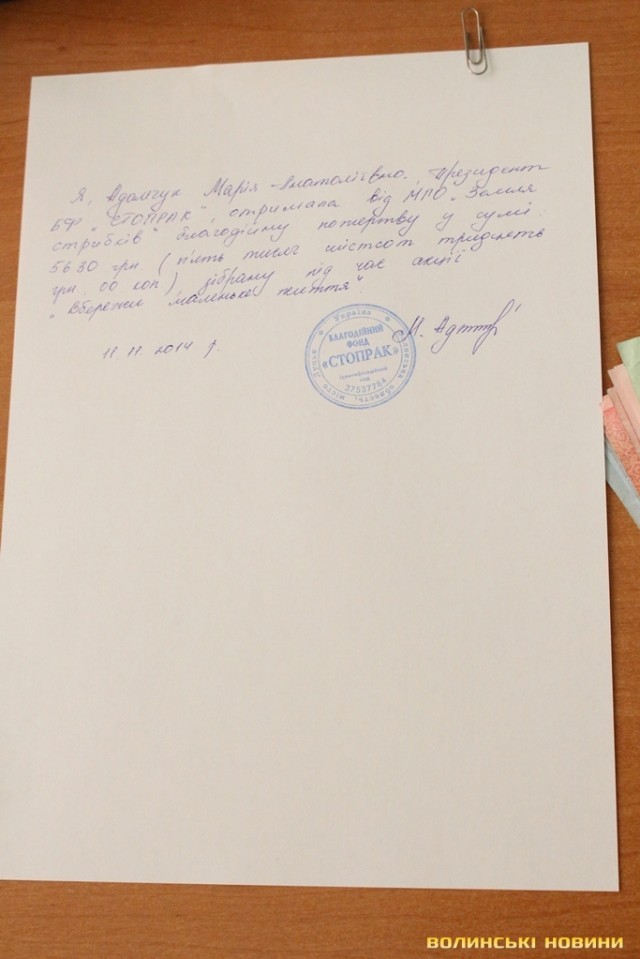 Я, Адамчук Марія Анатоліївна, Президент
БФ "СТОПРАК", отримала від МПО "Замля
стрибків" благодійну пожертву у сумі
5630 грн (п'ять тисяч шістсот тридцять
грн. 00 коп), зібрану під час акції
"Збережи маленьке життя".
11.11.2014 р.
М. Адам
Україна
Волинська область, місто Луцьк
БЛАГОДІЙНИЙ
ФОНД
«СТОПРАК»
Ідентифікаційний
код
37537784
ВОЛИНСЬКІ НОВИНИ